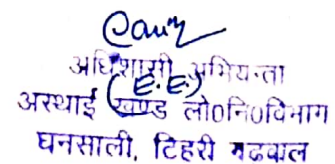 अधिशासी अभियन्ता
(E.E.)
अस्थाई खण्ड लो०नि०विभाग
घनसाली, टिहरी गढवाल